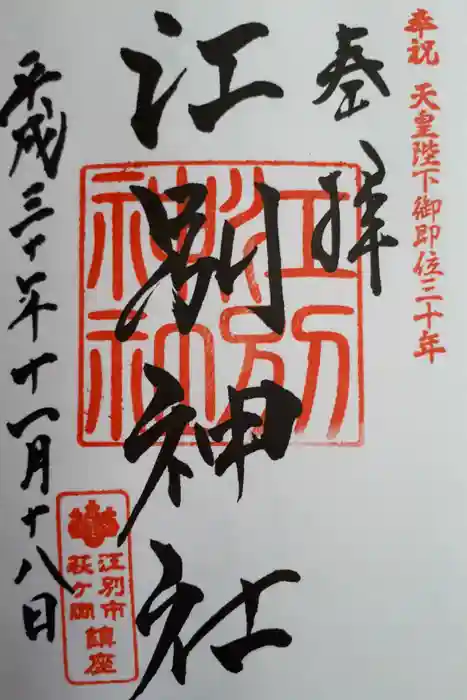 奉祝 天皇陛下御即位三十年
奉拝
江別神社
江別神社
平成三十年十一月十八日
江別市
萩ヶ岡
鎮座